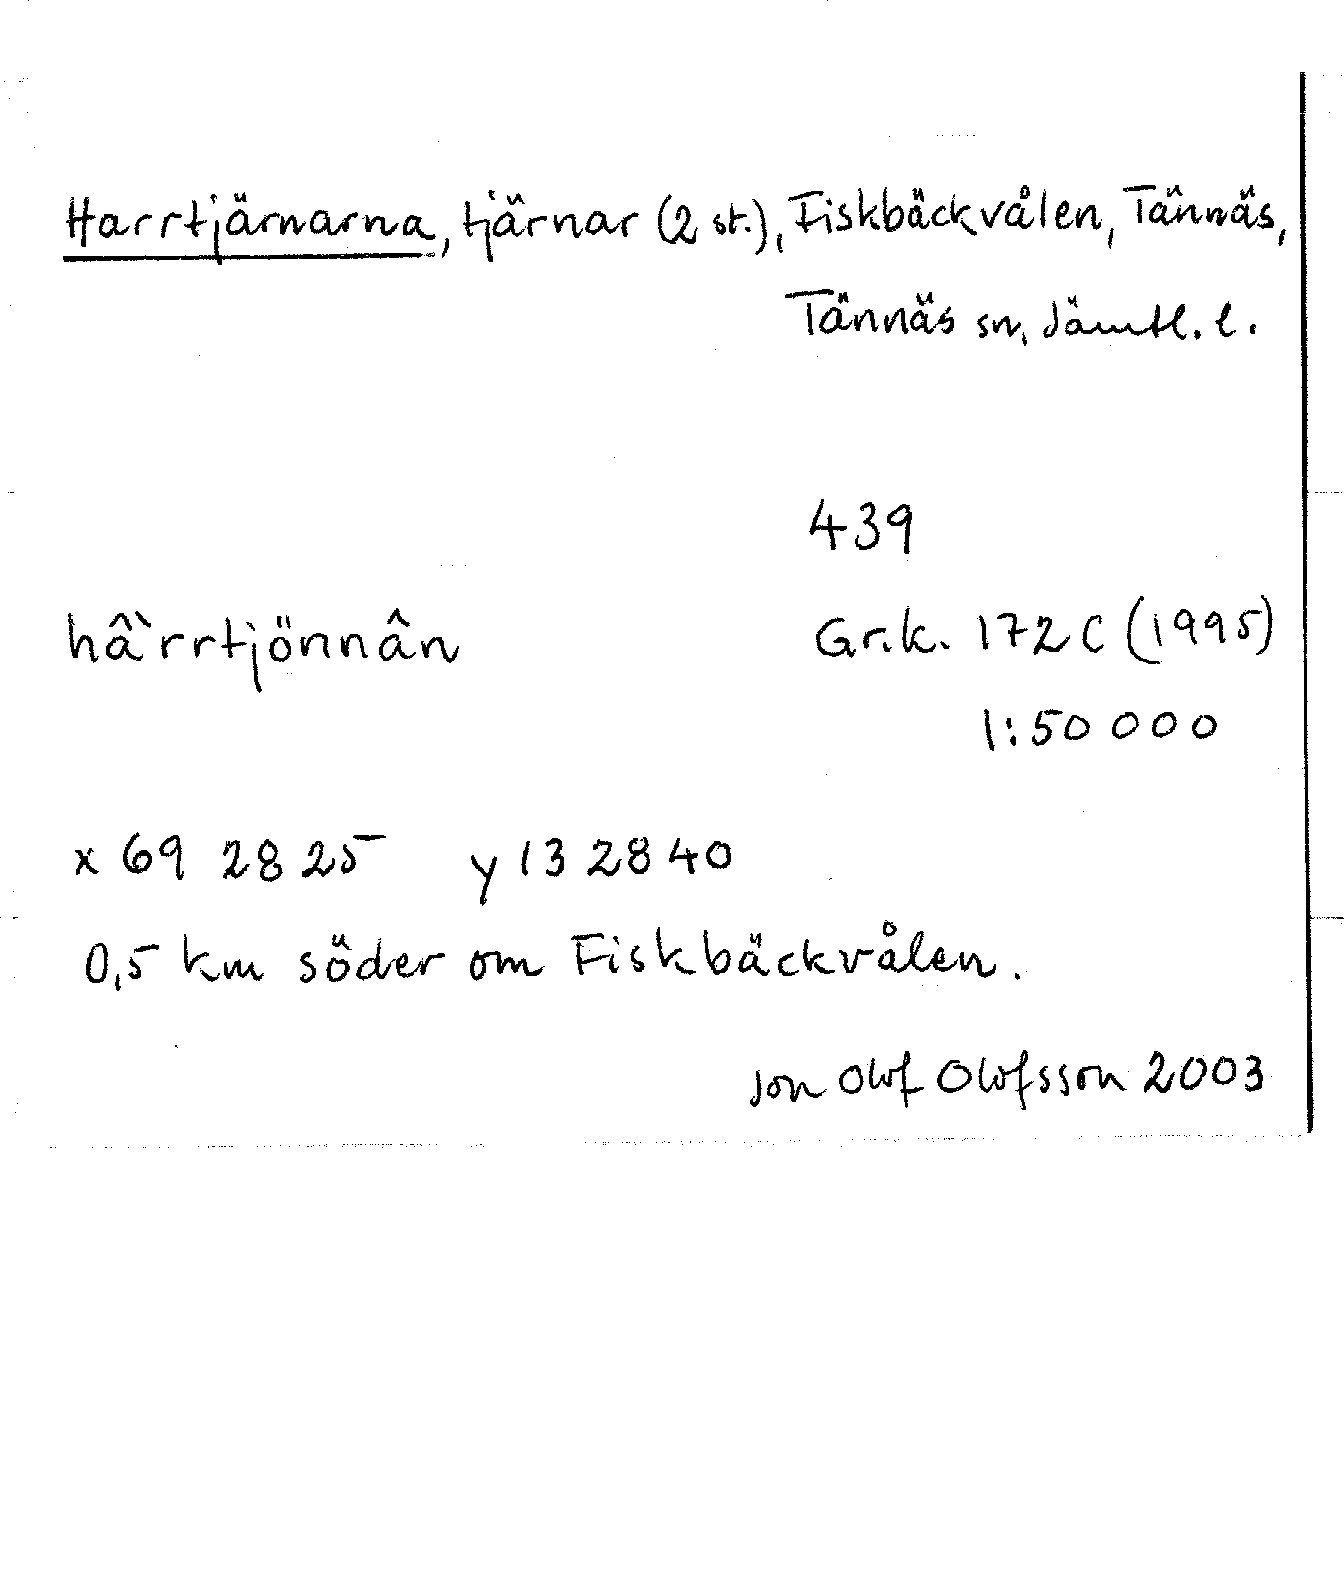 Harrtjärnarna, tjärnar (2 st.), Fiskbäckvålen, Tännäs,
Tännäs sn, Jämtl. l.
439
hâ`rrtjönnân
Gr.k. 172 C (1995)
1:50 000
x 69 28 25 y 13 28 40
0,5 km söder om Fiskbäckvålen.
Jon Olof Olofsson 2003